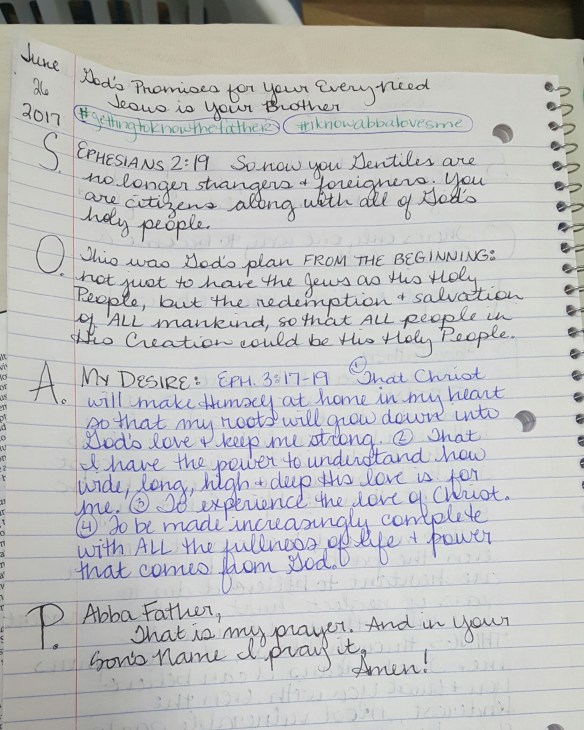 June
26
2017
God's Promises for Your Every Need
Jesus is Your Brother
#gettingtoknowthefather #iknowabbalovesme
S. EPHESIANS 2:19 So now you Gentiles are
no longer strangers + foreigners. You
are citizens along with all of God's
holy people.
O. This was God's plan FROM THE BEGINNING:
not just to have the Jews as His Holy
People, but the redemption + salvation
of ALL mankind, so that ALL people in
His Creation could be His Holy People.
A. MY DESIRE: EPH. 3:17-19 ① That Christ
will make Himself at home in my heart
so that my roots will grow down into
God's love + keep me strong. ② That
I have the power to understand how
wide, long, high + deep His love is for
me. ③ To experience the love of Christ.
④ To be made increasingly complete
with ALL the fullness of life + power
that comes from God.
P. Abba Father,
That is my prayer. And in Your
Son's Name I pray it,
Amen!